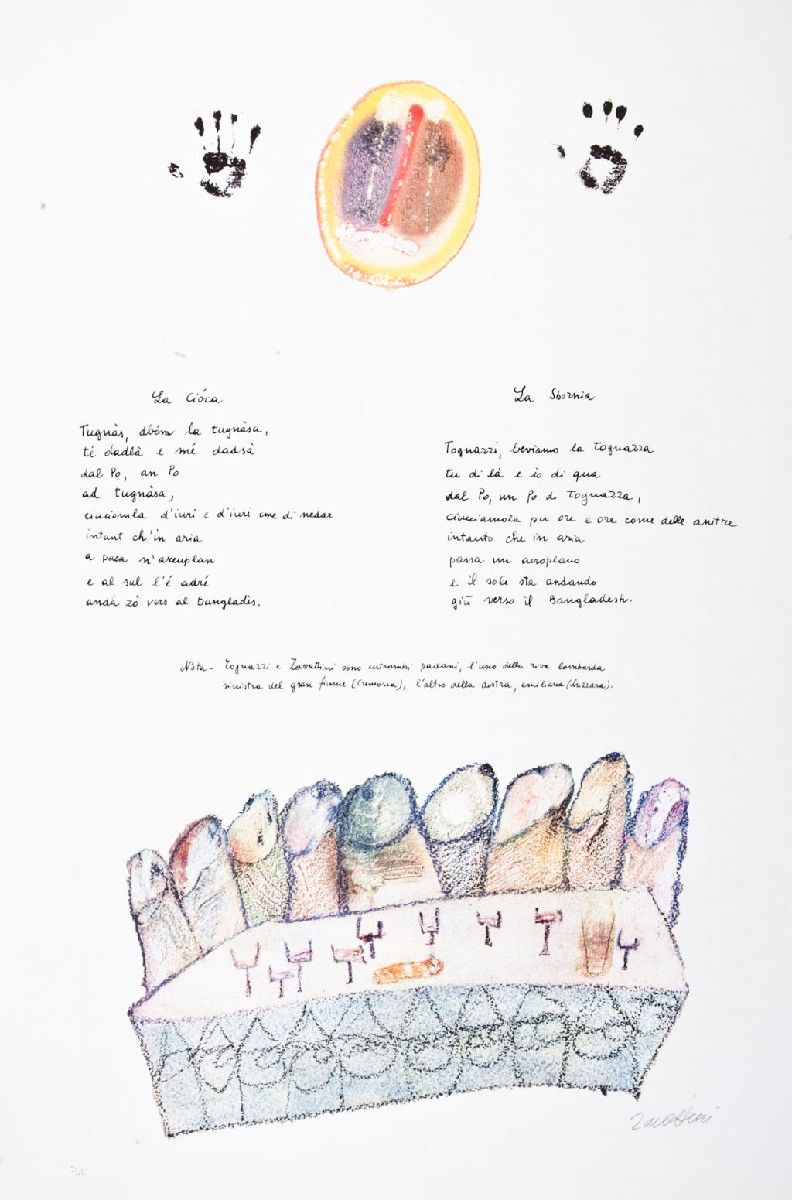 La Cióca
Tugnàs, dbóm la tugnàsa,
té dadlà e mé dadsà
dal Po, an Po
ad tugnàsa,
d'iuri e d'iuri cme di nedar
intant ch'in aria
a pasa n'areuplan
e al sul l'é adré
andà zò vers al Bangladès.
La Sbornia
Tognazzi, beviamo la Tognazza
tu di là e io di qua
dal Po, un Po di Tognazza,
cincciamola per ore e ore come delle anitre
intanto che in aria
passa un aeroplano
e il sole sta andando
giù verso il Bangladesh.
Nota - Tognazzi e Zavattini sono entrambi padani, l'uno della riva lombarda
sinistra del gran fiume (Cremona), l'altro della destra, emiliana (Luzzara).
Zavattini